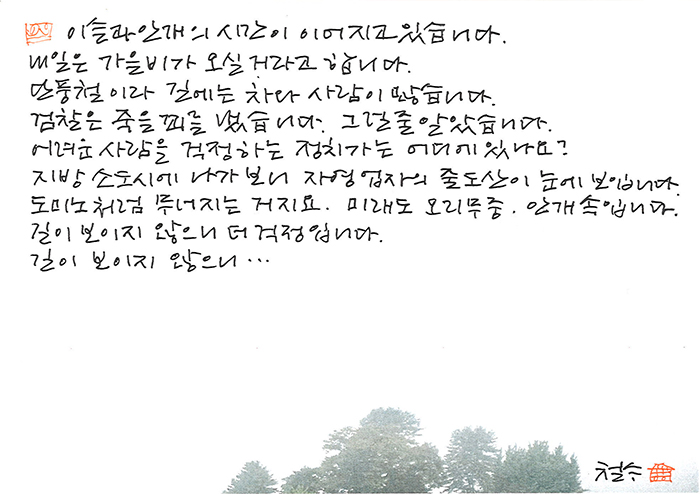 이슬과 안개의 시간이 이어지고 있습니다.
내일은 가을비가 오실 거라고 합니다.
단풍철이라 길에는 차와 사람이 많습니다.
검찰은 죽을 꾀를 냈습니다. 그럴 줄 알았습니다.
어려운 사람을 걱정하는 정치가는 어디에 있나요?
지방 소도시에 나가 보니 자영업자의 줄도산이 눈에 보입니다.
도미노처럼 무너지는 거지요. 미래도 오리무중. 안개 속입니다.
길이 보이지 않으니 더 걱정입니다.
길이 보이지 않으니 …
철수